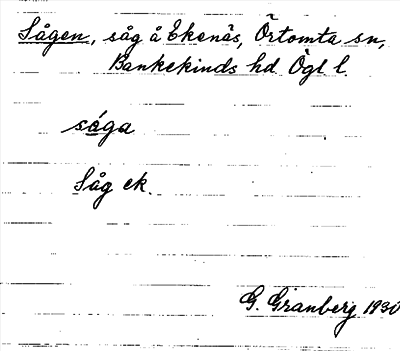 Sågen, såg å Ekenäs, Örtomta sn,
Bankekinds hd Ögl l.
såga
Såg ek.
G. Granberg 1930